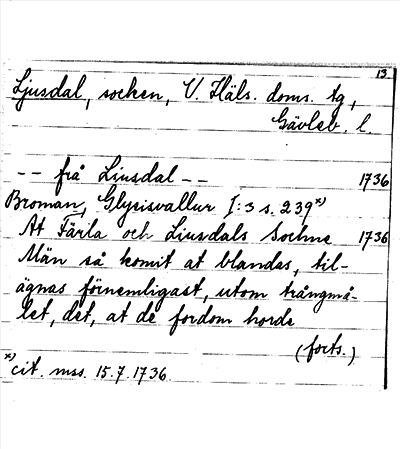 13.
Ljusdal, socken, V. Häls. doms. tg,
Gävleb. l.
-- frå Liusdal -- 1736
Broman, Glysisvallur I:3 s. 239 x)
At Färla och Liusdals Sockne 1736
Män så komit at blandas, til-
ägnas förnemligast, utom trångmå-
let, det, at de fordom horde
(forts.)
x) cit. mss. 15.7.1736